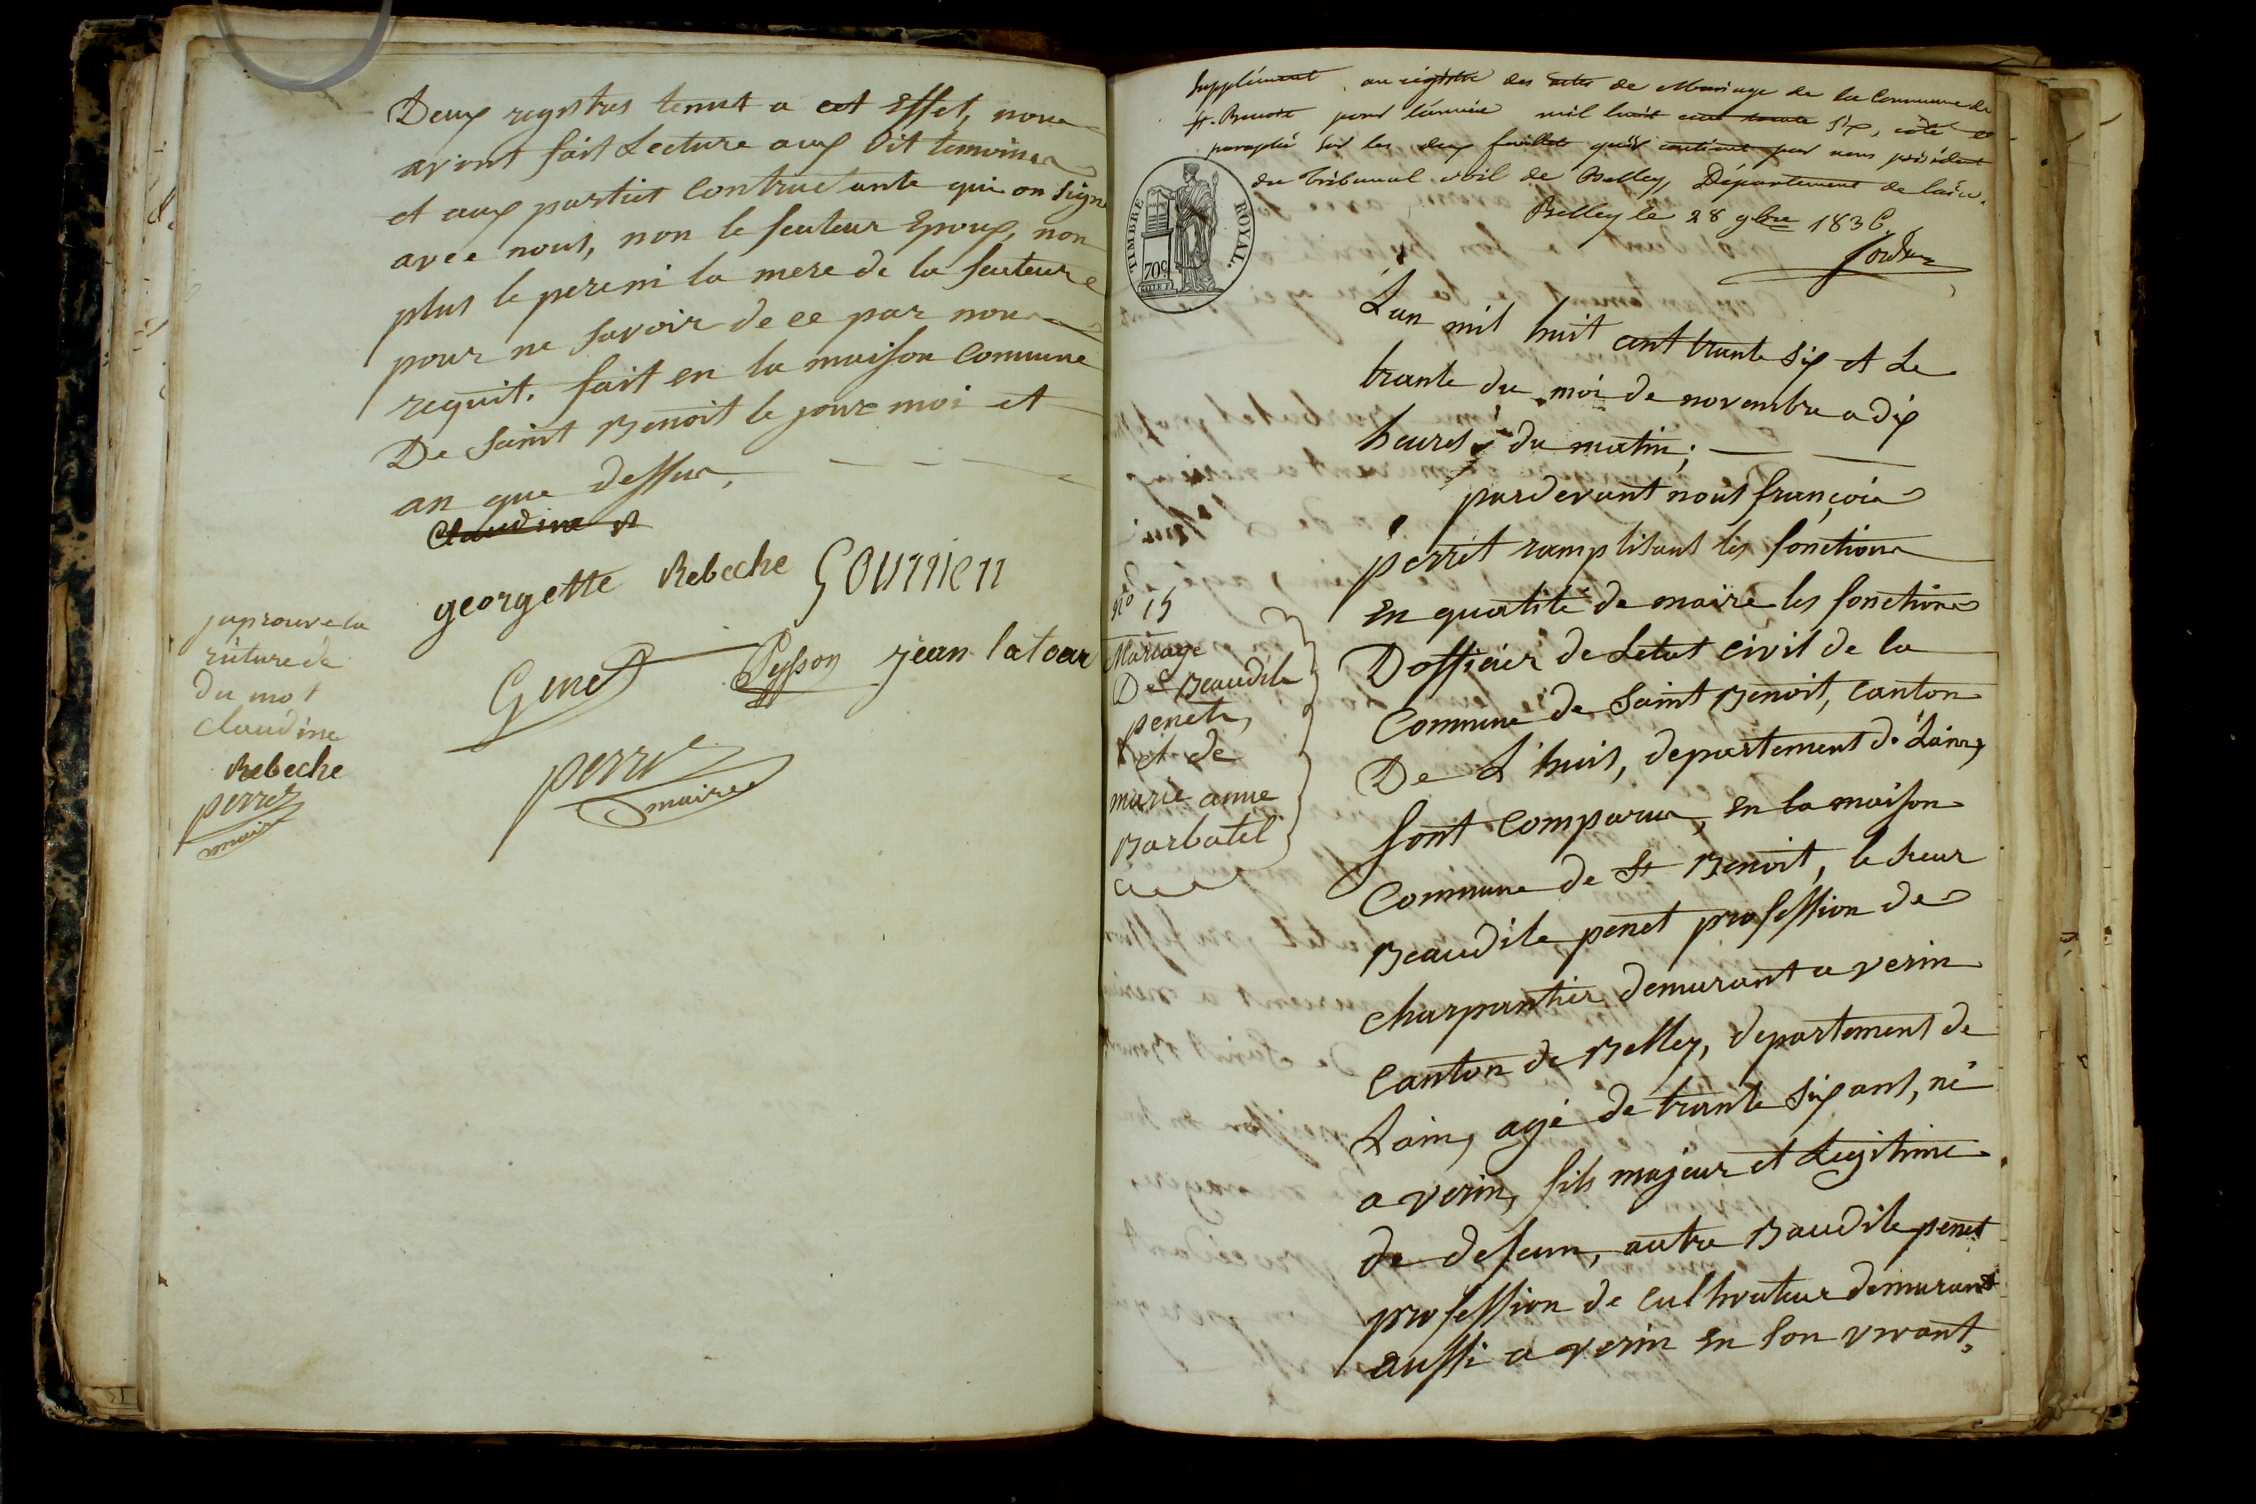 Deux registres tenut a cet Effet, nous
avont fait Lecture aux dit temoins
et aux partiet Contractante qui on signe
avec nous, non le feuteur Epoux, non
plus le pere ni la mere de la feuteure
pour ne savoir de ce par nous
requit. fait en la maison Commune
De saint Benoit le jour moi et
an que dessus,
Claudine et
georgette Rebeche Sournien
Genet Peysson jean latour
perret
maire
japrouve la
riuture de
du mot
claudine
Rebeche
perret
maire
Supplément au régistre des actes de Mariage de la Commune de
St. Benoit pour l'année mil huit cent trente six, coté et
paraphé sur les deux feuillets qu'il contient par nous président
du Tribunal civil de Belley, Département de l'ain.
Belley le 28 9bre 1836.
TIMBRE ROYAL.
70c
L'an mil huit cent trante six et Le
trante du moi de novembre a dix
heures du matin;
pardevant nous françois
perret ramplisant les fonctions
En qualité de maire les fonctions
D'officier de Letat civil de la
Commune de Saint Benoit, canton
De L'huis, departement de L'ain,
sont comparus, en la maison
Commune de St Benoit, le sieur
Beaudile penet profession de
charpantier demurant a verin
Canton de Belley, departement de
Lain, agé de trante six ant, né
a verin, fils majeur et Legitime
de defeun, autre Baudile penet
profession de cultivateur demurant
aussi a verin en son vivant,
No 15
Mariage
De Beaudile
penet,
et de
marie anne
Barbatel